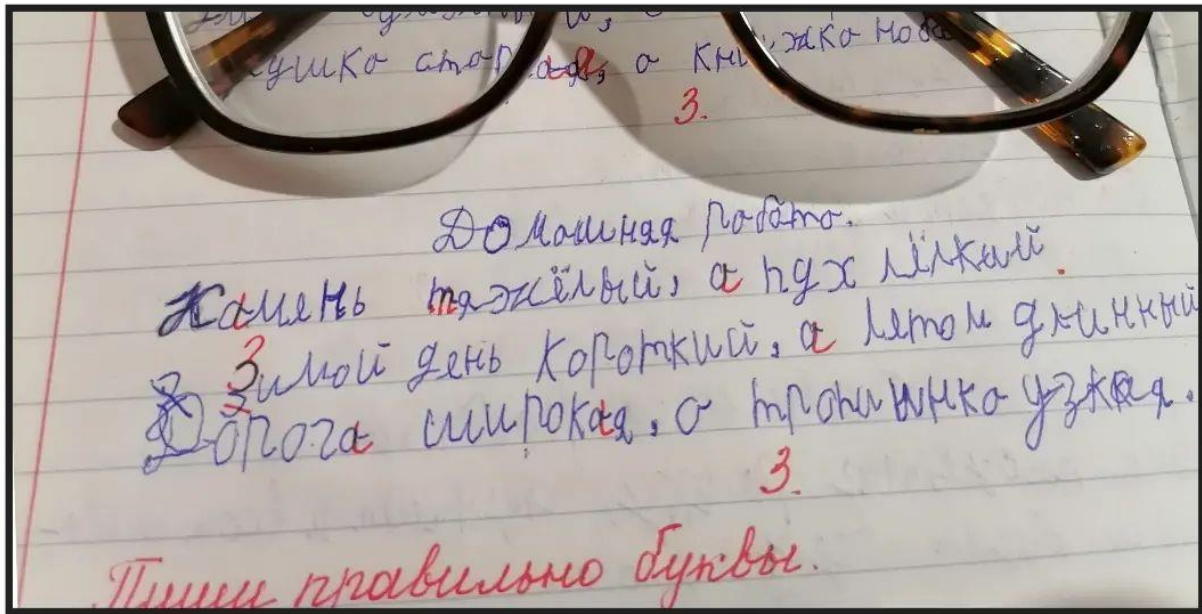 старая, а книжка нова
3.
Домашняя работа.
Камень тяжёлый, а пух лёлкий.
Зимой день короткий, а лятом длинный
Дорога широкая, а тропинка узкая.
3.
Пиши правильно буквы.